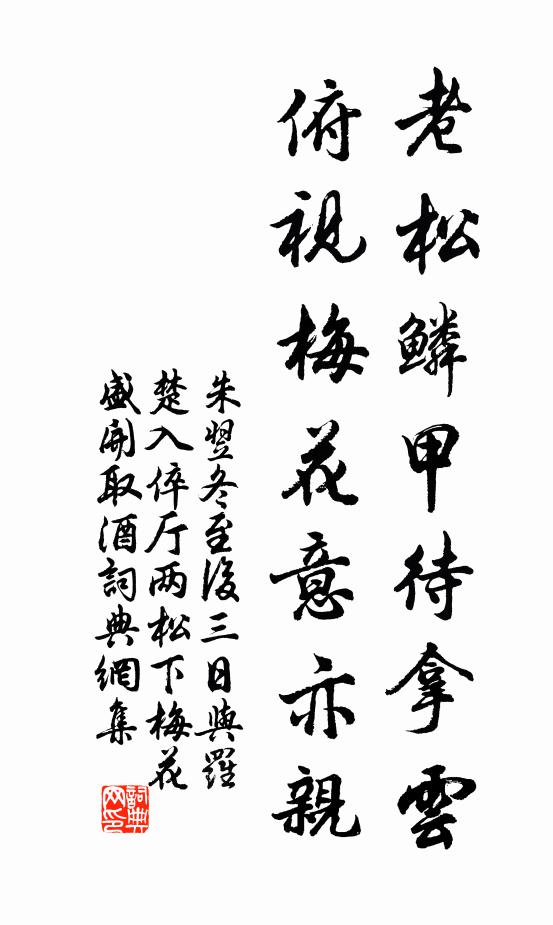 老松鳞甲待拿雲
俯視梅花意亦親
朱翌冬至後三日與羅
楚入倅厅两松下梅花
盛開取酒詞典網集
詞典网印